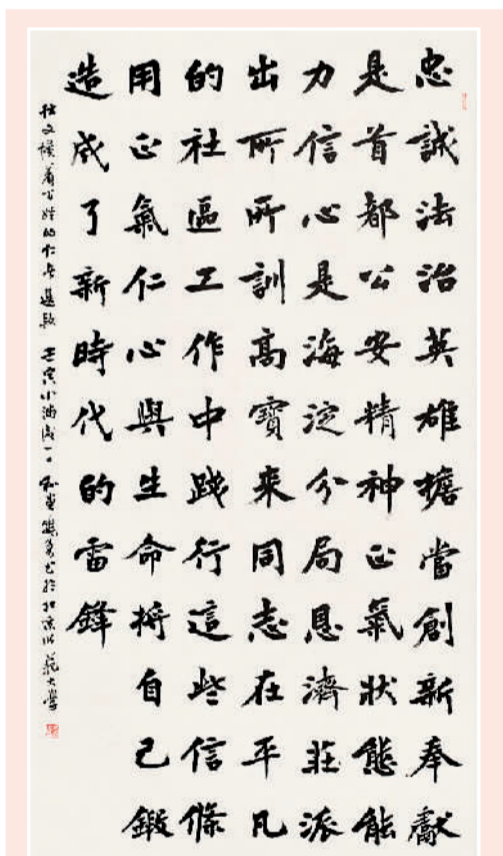 忠誠法治英雄擔當創新奉獻
是首都公安精神正氣狀態能
力信心是海淀分局恩濟莊派
出所所訓高寶來同志在平凡
的社區工作中踐行這些信條
用正氣仁心與生命將自己鍛
造成了新時代的雷鋒